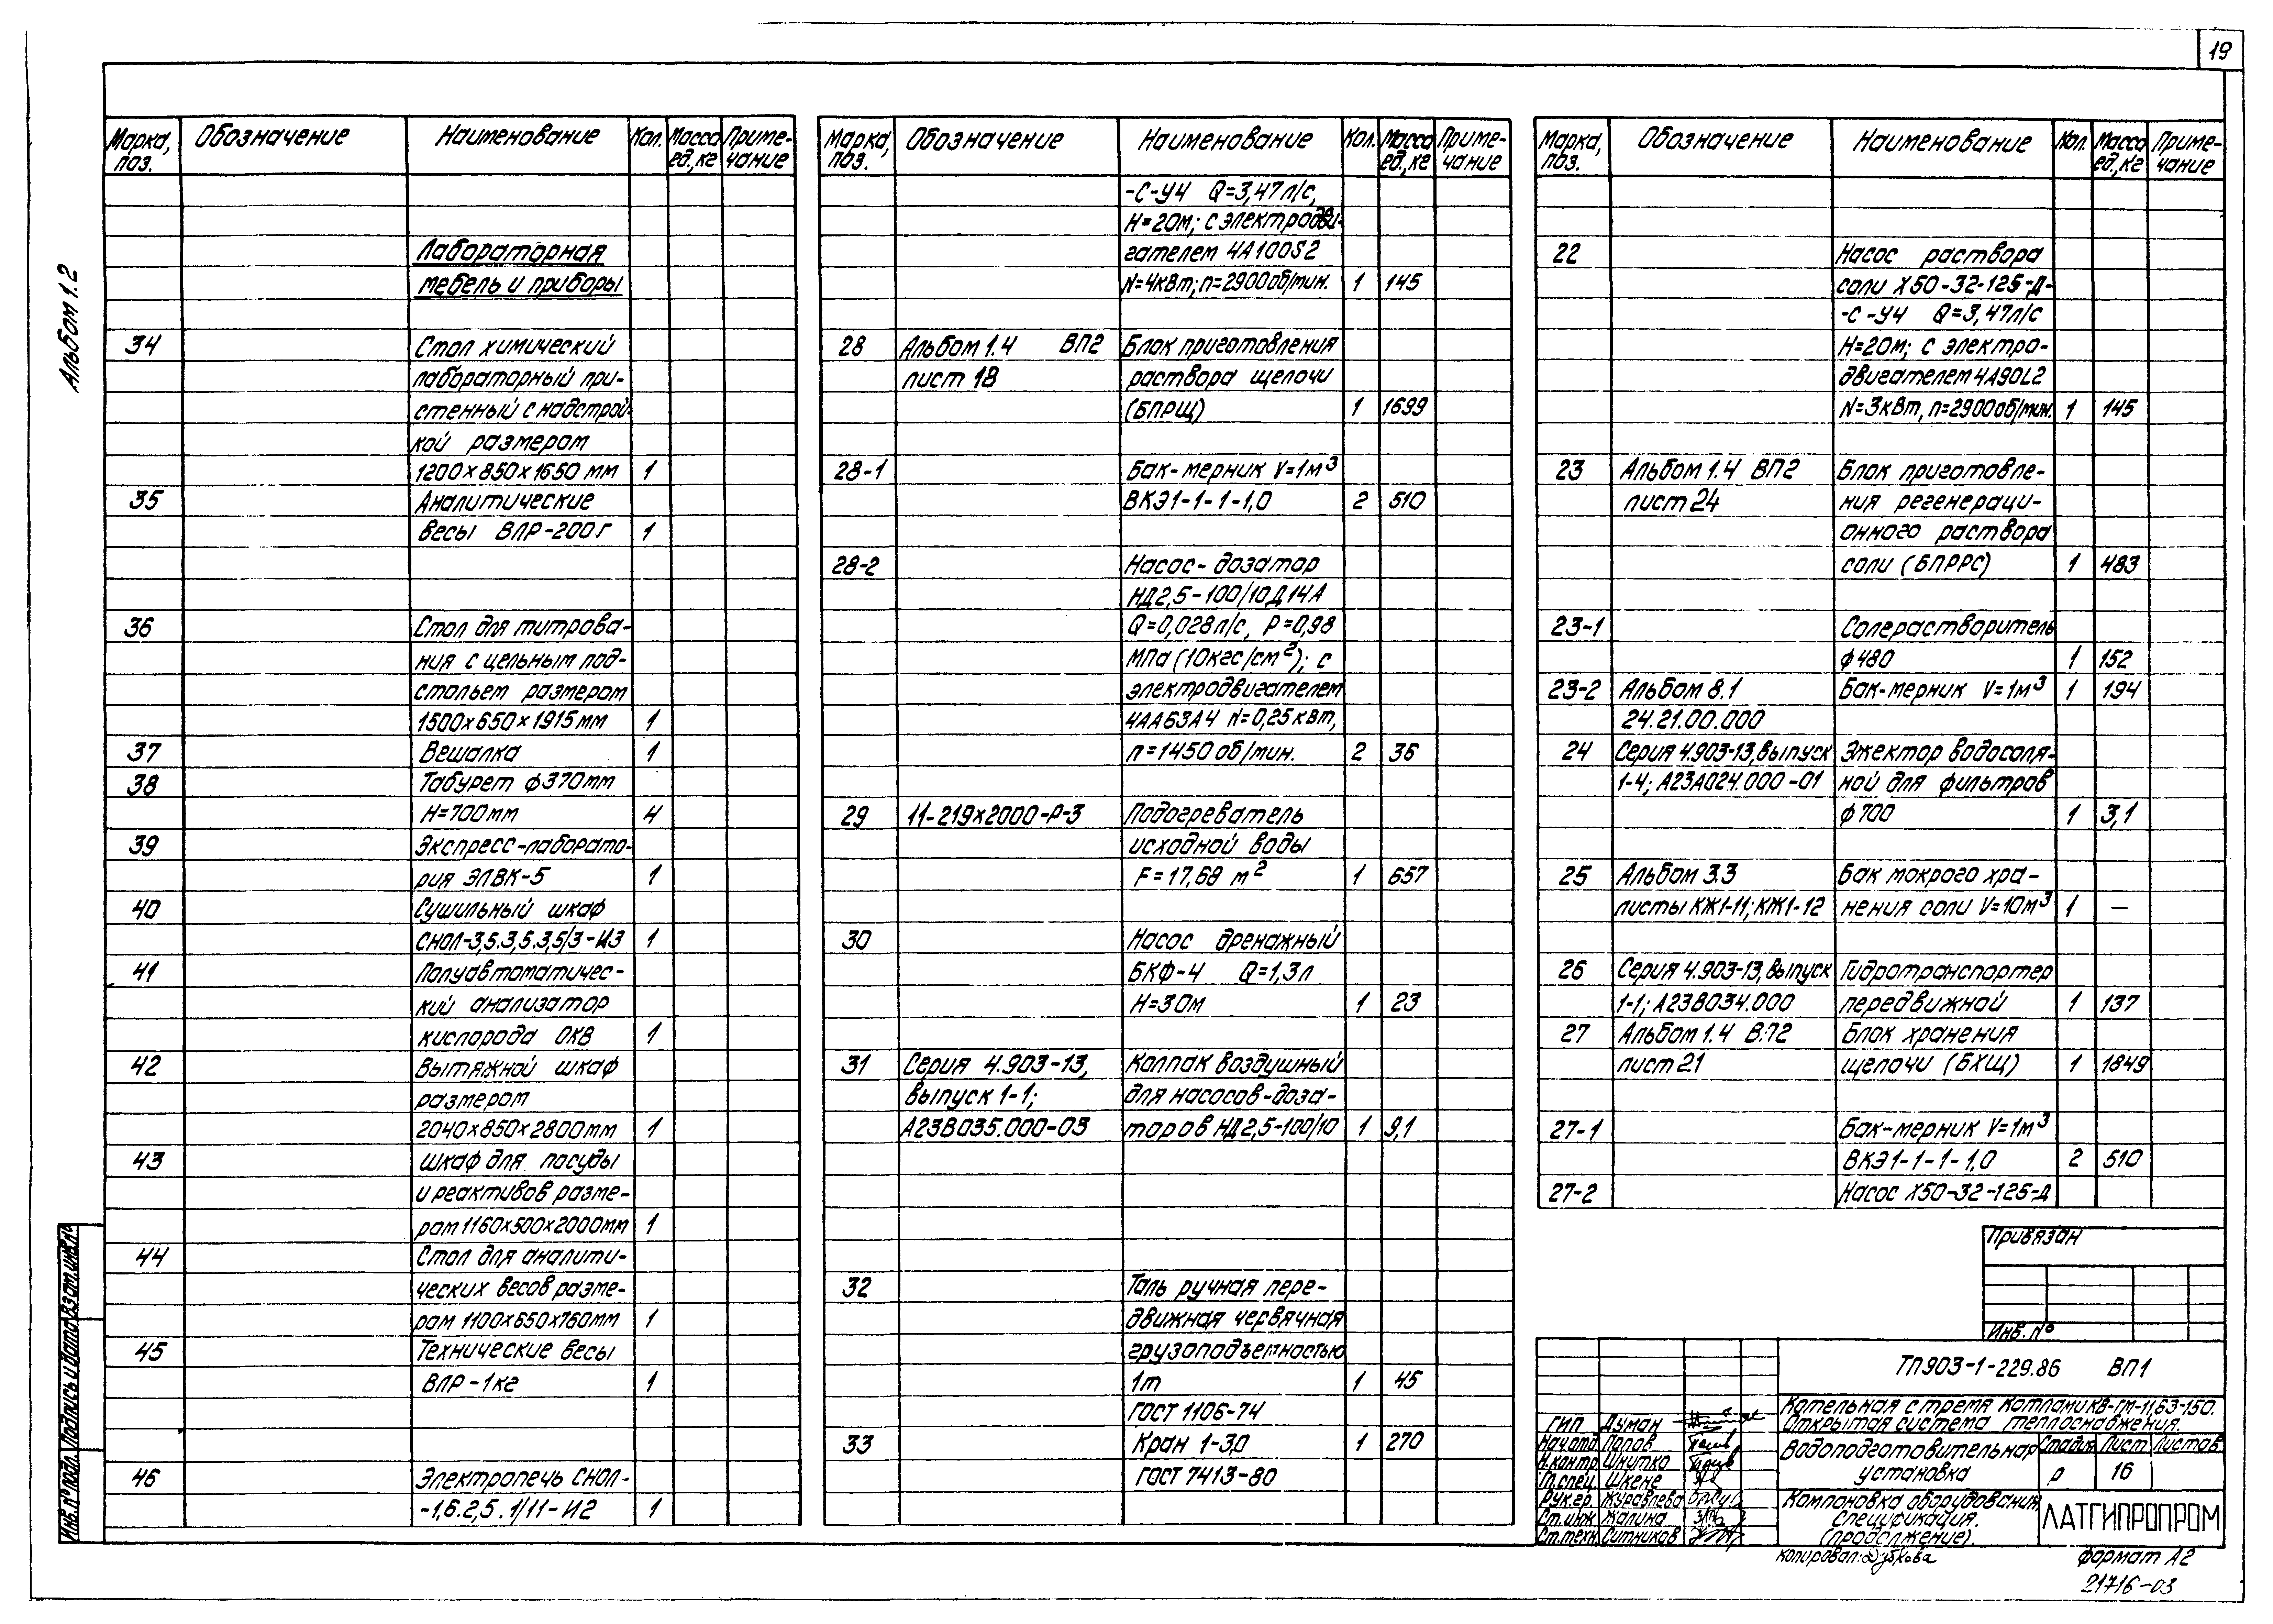 19
Альбом 1.2
Марка, поз. Обозначение Наименование Кол. Масса ед., кг Приме-чание
Лабораторная
мебель и приборы
34 Стол химический
лабораторный при-
стенный с надстрой-
кой размером
1200×850×1650 мм 1
35 Аналитические
весы ВЛР-200г 1
36 Стол для титрова-
ния с цельным под-
стольем размером
1500×650×1915 мм 1
37 Вешалка 1
38 Табурет ф370мм
Н=700мм 4
39 Экспресс-лаборато-
рия ЭЛВК-5 1
40 Сушильный шкаф
СНОЛ-3,5.3,5.3,5/3-И3 1
41 Полуавтоматичес-
кий анализатор
кислорода ОКВ 1
42 Вытяжной шкаф
размером
2040×850×2800мм 1
43 Шкаф для посуды
и реактивов разме-
рам 1160×500×2000мм 1
44 Стол для аналити-
ческих весов разме-
рам 1100×650×760мм 1
45 Технические весы
ВЛР-1кг 1
46 Электропечь СНОЛ-
-1,6.2,5.1/11-И2 1
Марка, поз. Обозначение Наименование Кол. Масса ед., кг Приме-чание
-С-У4 Q=3,47л/с,
Н=20м; с электродви-
гателем 4А100S2
N=4кВт; n=2900об/мин. 1 145
28 Альбом 1.4 ВП2 Блок приготовления
лист 18 раствора щелочи
(БПРЩ) 1 1699
28-1 Бак-мерник V=1м³
ВКЭ1-1-1-1,0 2 510
28-2 Насос-дозатор
НД2,5-100/10Д14А
Q=0,028л/с, Р=0,98
МПа (10кгс/см²); с
электродвигателем
4АА63А4 N=0,25кВт,
n=1450 об/мин. 2 36
29 11-219×2000-Р-3 Подогреватель
исходной воды
F=17,68 м² 1 657
30 Насос дренажный
БКФ-4 Q=1,3л
Н=30м 1 23
31 Серия 4.903-13, Колпак воздушный
выпуск 1-1; для насосов-доза-
А23В035.000-03 торов НД2,5-100/10 1 9,1
32 Таль ручная пере-
движная червячная
грузоподъемностью
1т 1 45
ГОСТ 1106-74
33 Кран 1-3,0 1 270
ГОСТ 7413-80
Марка, поз. Обозначение Наименование Кол. Масса ед., кг Приме-чание
22 Насос раствора
соли Х50-32-125-Д-
-С-У4 Q=3,47л/с
Н=20м; с электро-
двигателем 4А90L2
N=3кВт, n=2900об/мин. 1 145
23 Альбом 1.4 ВП2 Блок приготовле-
лист 24 ния регенераци-
онного раствора
соли (БПРРС) 1 483
23-1 Солерастворитель
ф480 1 152
23-2 Альбом 8.1 Бак-мерник V=1м³ 1 194
24.21.00.000
24 Серия 4.903-13, выпуск Эжектор водосоля-
1-4; А23А024.000-01 ной для фильтров
ф700 1 3,1
25 Альбом 3.3 Бак мокрого хра-
листы КЖ1-11; КЖ1-12 нения соли V=10м³ 1 —
26 Серия 4.903-13, выпуск Гидротранспортер
1-1; А23В034.000 передвижной 1 137
27 Альбом 1.4 ВП2 Блок хранения
лист 21 щелочи (БХЩ) 1 1849
27-1 Бак-мерник V=1м³
ВКЭ1-1-1-1,0 2 510
27-2 Насос Х50-32-125-Д
Привязан
Инв. №
ТП903-1-229.86 ВП1
Котельная с тремя котлами КВ-ГМ-11,63-150.
Открытая система теплоснабжения.
ГИП Думан
Нач.отд. Попов
Н.контр. Шнитко
Гл.спец. Шкене
Рук.гр. Журавлева
Ст.инж. Жалина
Ст.техн. Ситников
Водоподготовительная
установка
Стадия Лист Листов
Р 16
Компоновка оборудования.
Спецификация.
(продолжение).
ЛАТГИПРОПРОМ
Копировал: Дубкова
Формат А2
21716-03
Инв. № подл. Подпись и дата Взат. инв. №